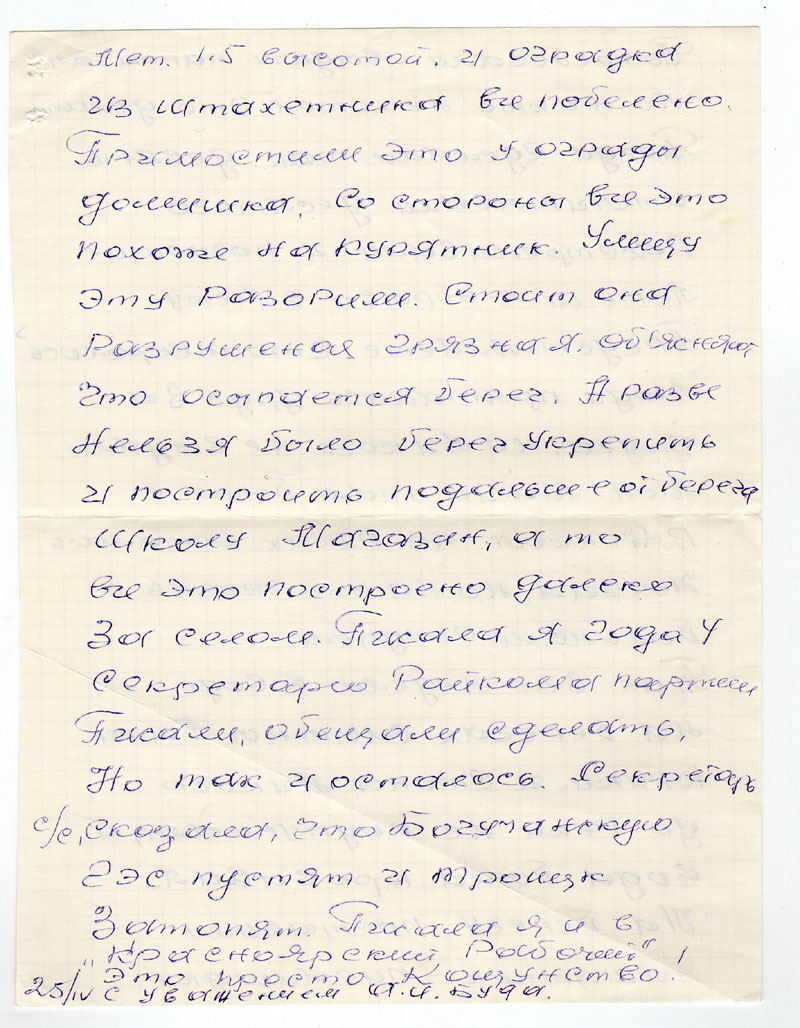 Мет. 1.5 высотой. и оградка
из штахетника вы побелено.
Примостили это у ограды
домишка. Со стороны вы это
похоже на курятник. Улицу
эту разорили. Стоит она
Разрушеная грязная. Об'ясняют
Что осыпается берег. А разве
Нельзя было берег укрепить
и построить подальше от берега
Школу Магазин, а то
вы это построено далеко
За селом. Писала я года 4
Секретарю Райкома партии
Писали, обещали сделать,
Но так и осталось. Секретарь
с/с, сказала, что Богучанскую
Гэс пустят и троицк
Затопят. Писала я и в
„Красноярский Рабочий"!
Это просто Кощунство.
25/IV с уважением А.И. Буда.